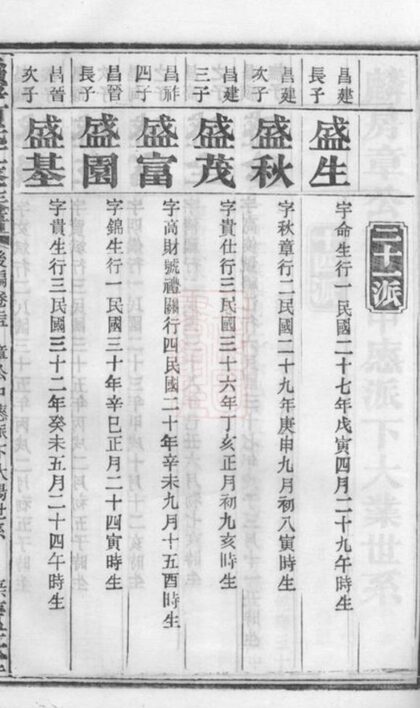 二十一派
昌建長子
盛生
字命生行一民國二十七年戊寅四月二十九午時生
昌建次子
盛秋
字秋章行二民國二十九年庚申九月初八寅時生
昌建三子
盛茂
字貴仕行三民國三十六年丁亥正月初九亥時生
昌祥四子
盛富
字高財號禮關行四民國二十年辛未九月十五酉時生
昌晉長子
盛園
字錦生行一民國三十年辛巳正月二十四寅時生
昌晉次子
盛基
字貴生行三民國三十二年癸未五月二十四午時生